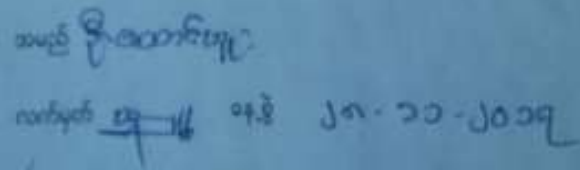 အမည် ဦးအောင်ထူး
လက်မှတ် နေ့စွဲ ၂၈-၁၁-၂၀၁၇